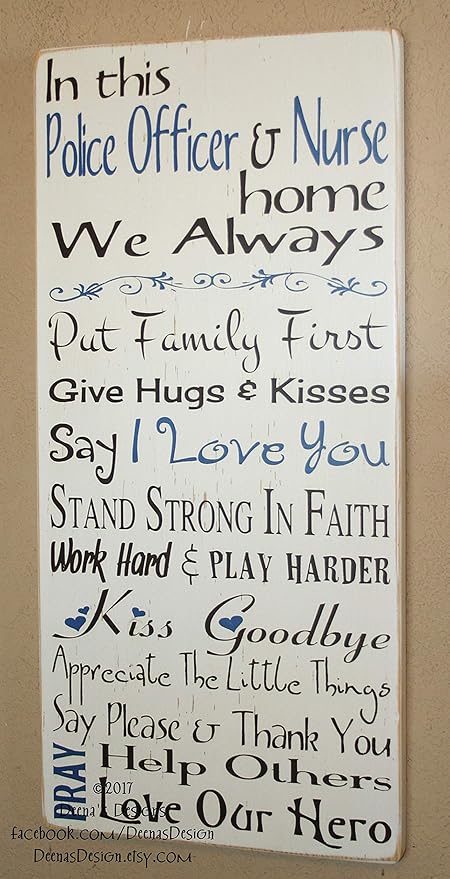 In this
Police Officer & Nurse
home
We Always
Put Family First
Give Hugs & Kisses
Say I Love You
STAND STRONG IN FAITH
Work Hard & PLAY HARDER
Kiss Goodbye
Appreciate The Little Things
Say Please & Thank You
PRAY
Help Others
Love Our Hero
©2017
Deena's Designs
facebook.com/DeenasDesign
DeenasDesign.etsy.com